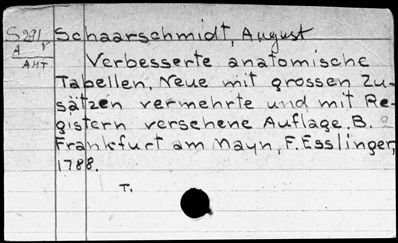 S291 Schaarschmidt, August
A V
AHT
Verbesserte anatomische
Tabellen, Neue mit grossen Zu-
sätzen vermehrte und mit Re-
gistern versehene Auflage. B.
Frankfurt am Mayn, F. Esslinger,
1788.
T.